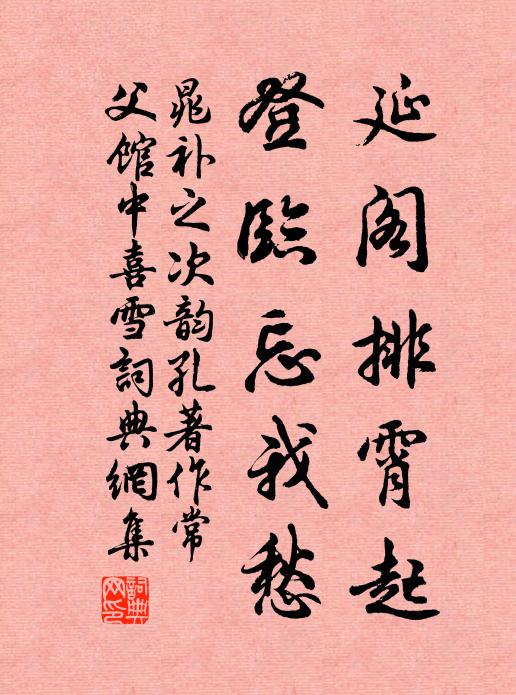 延阁排霄起
登臨忘我愁
晁补之次韵孔著作常
父馆中喜雪詞典網集
詞典网印